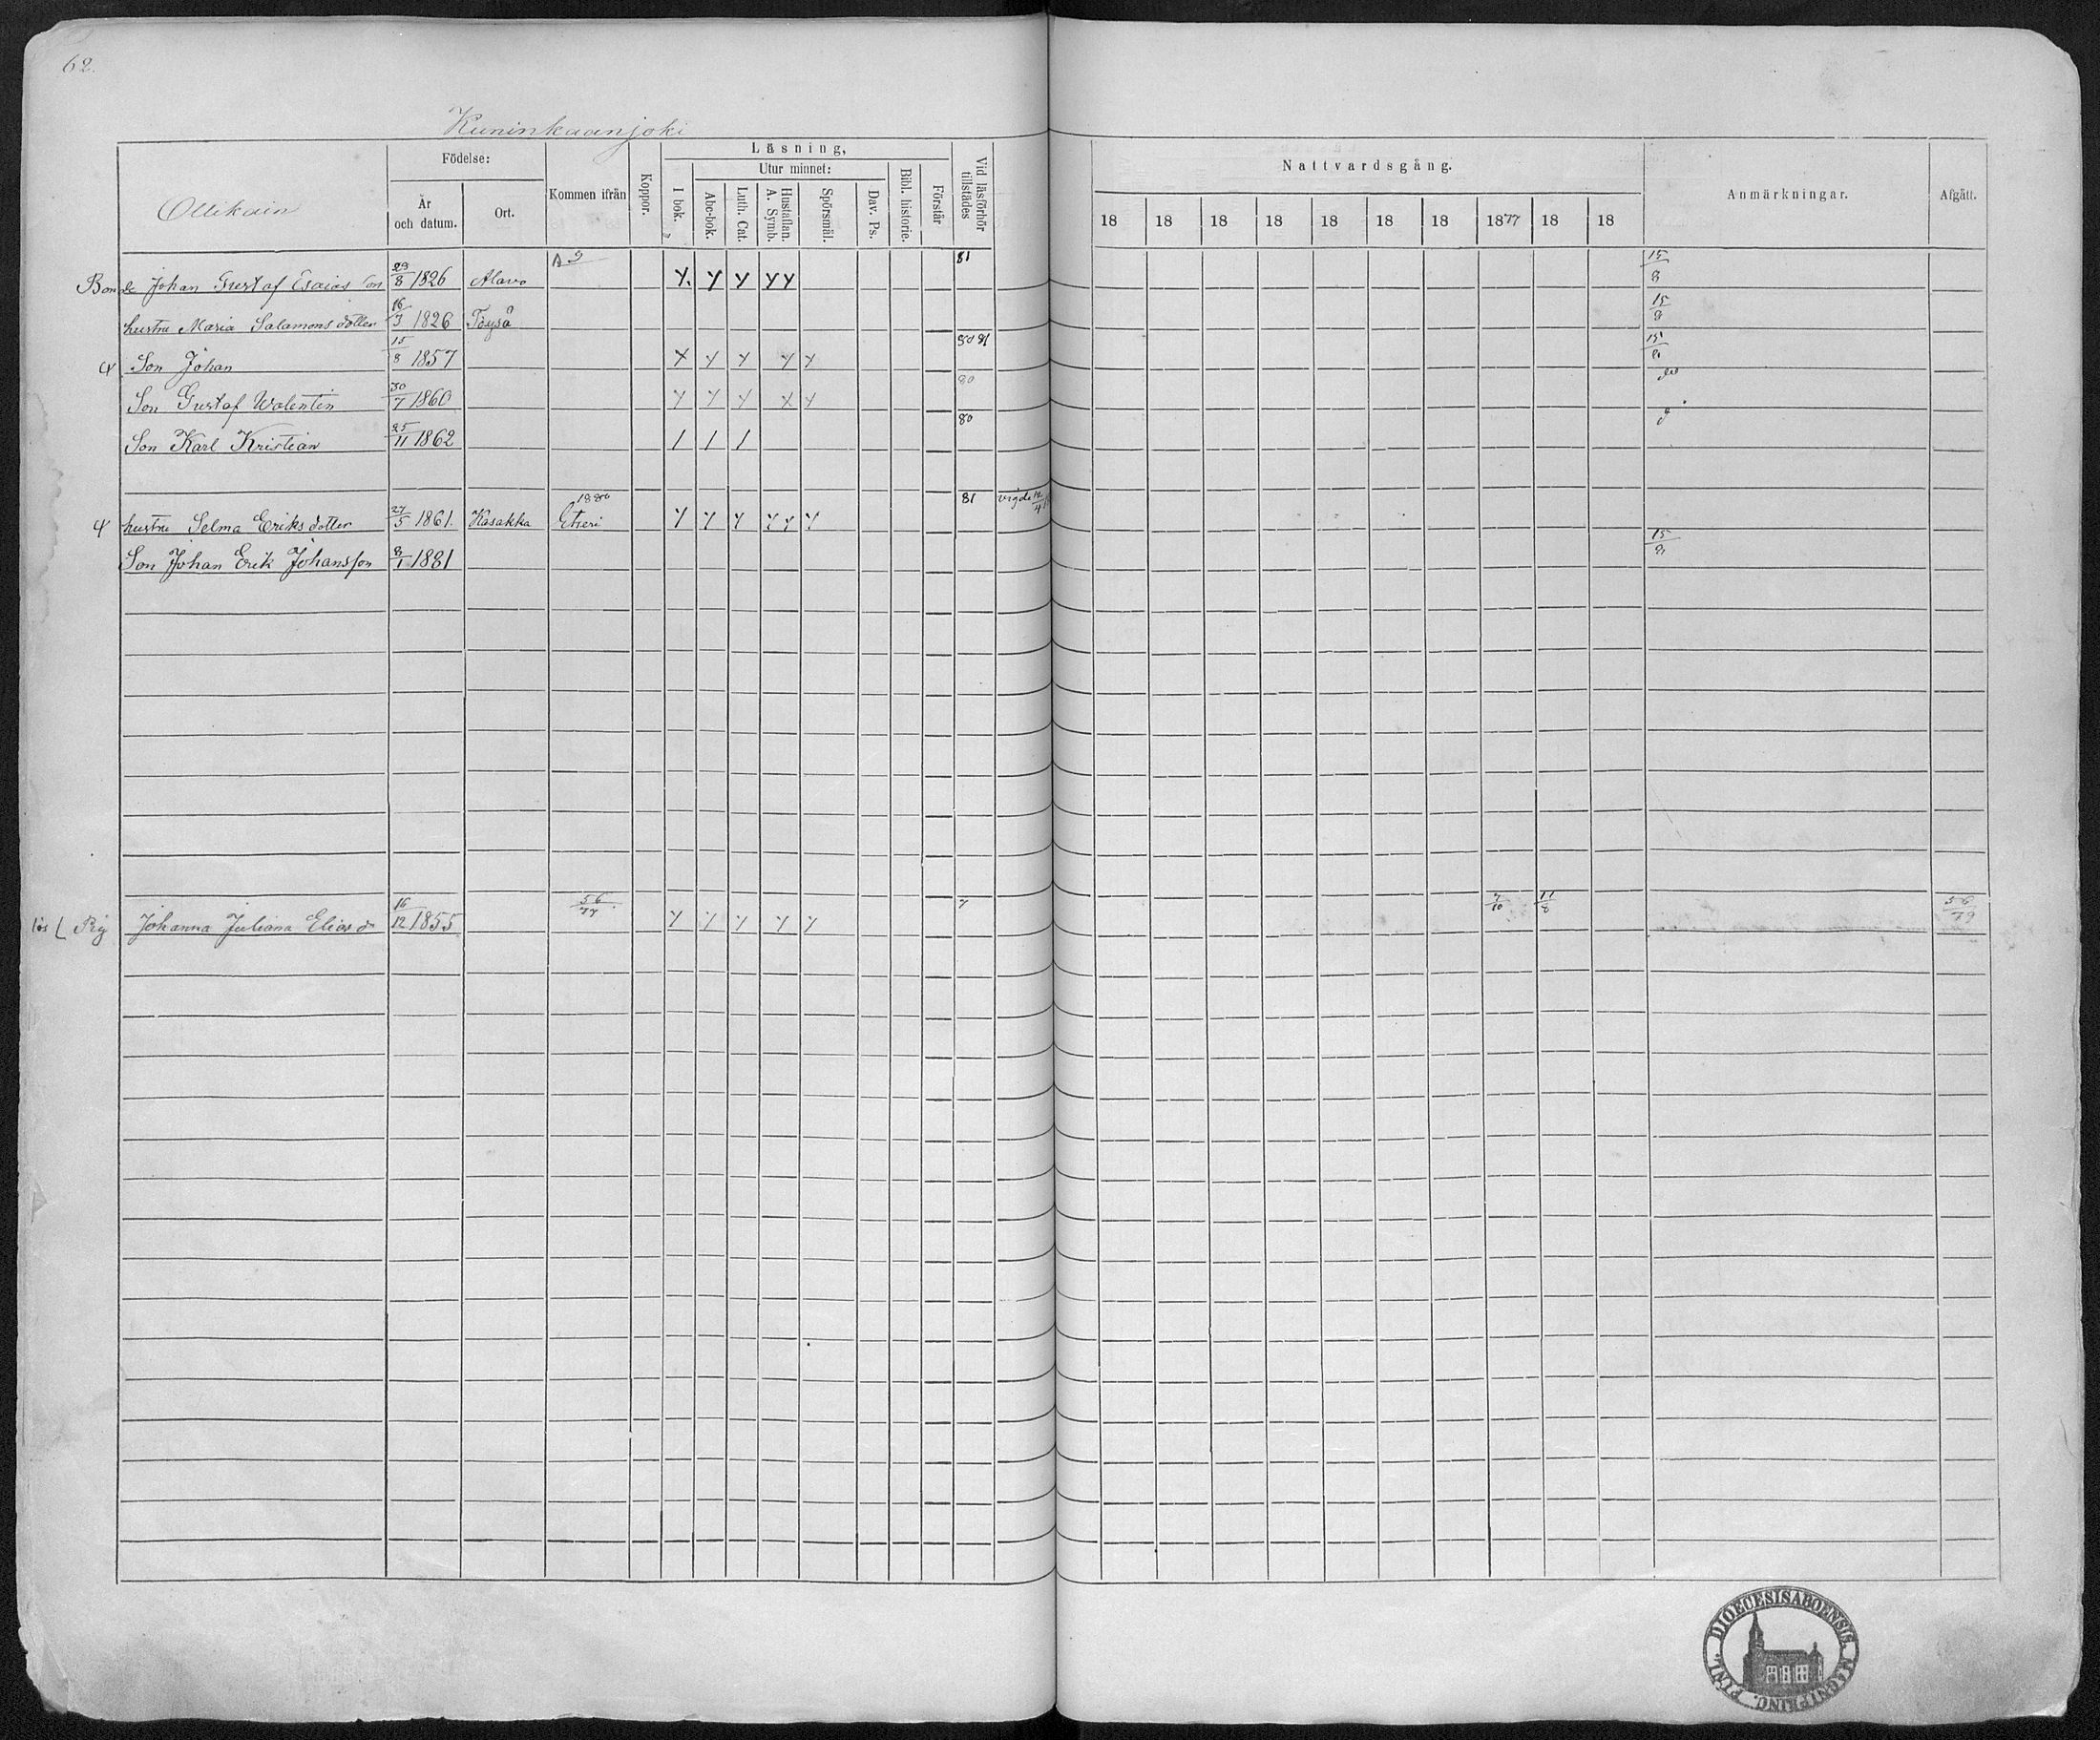 62.
Kuninkaanjoki
Ollikain
Födelse:
År och datum.
Ort.
Kommen ifrån
Koppor.
Läsning,
I bok.
Utur minnet:
Abc-bok.
Luth. Cat.
Hustaflan. A. Symb.
Spörsmål.
Dav. Ps.
Bibl. historie.
Förstår
Vid läsförhör tillstädes
Nattvardsgång.
18 18 18 18 18 18 18 1877 18 18
Anmärkningar.
Afgått.
Bonde Johan Gustaf Esaias son 29/8 1826 Alavo 81 15/8
hustru Maria Salamons dotter 16/3 1826 Töysä 15/8
Son Johan 15/8 1857 80 81 15/8
Son Gustaf Walentin 30/7 1860 80
Son Karl Kristian 25/11 1862 80
hustru Selma Eriks dotter 27/5 1861. Kasakka 1880 Etseri 81 vigde
Son Johan Erik Johansson 8/1 1881 15/8
lös Pig Johanna Juliana Elias d 16/12 1855 56/77 7/10 11/8 56/79
DIOECESIS ABOENSIS MAGNI PRINC. FINL.